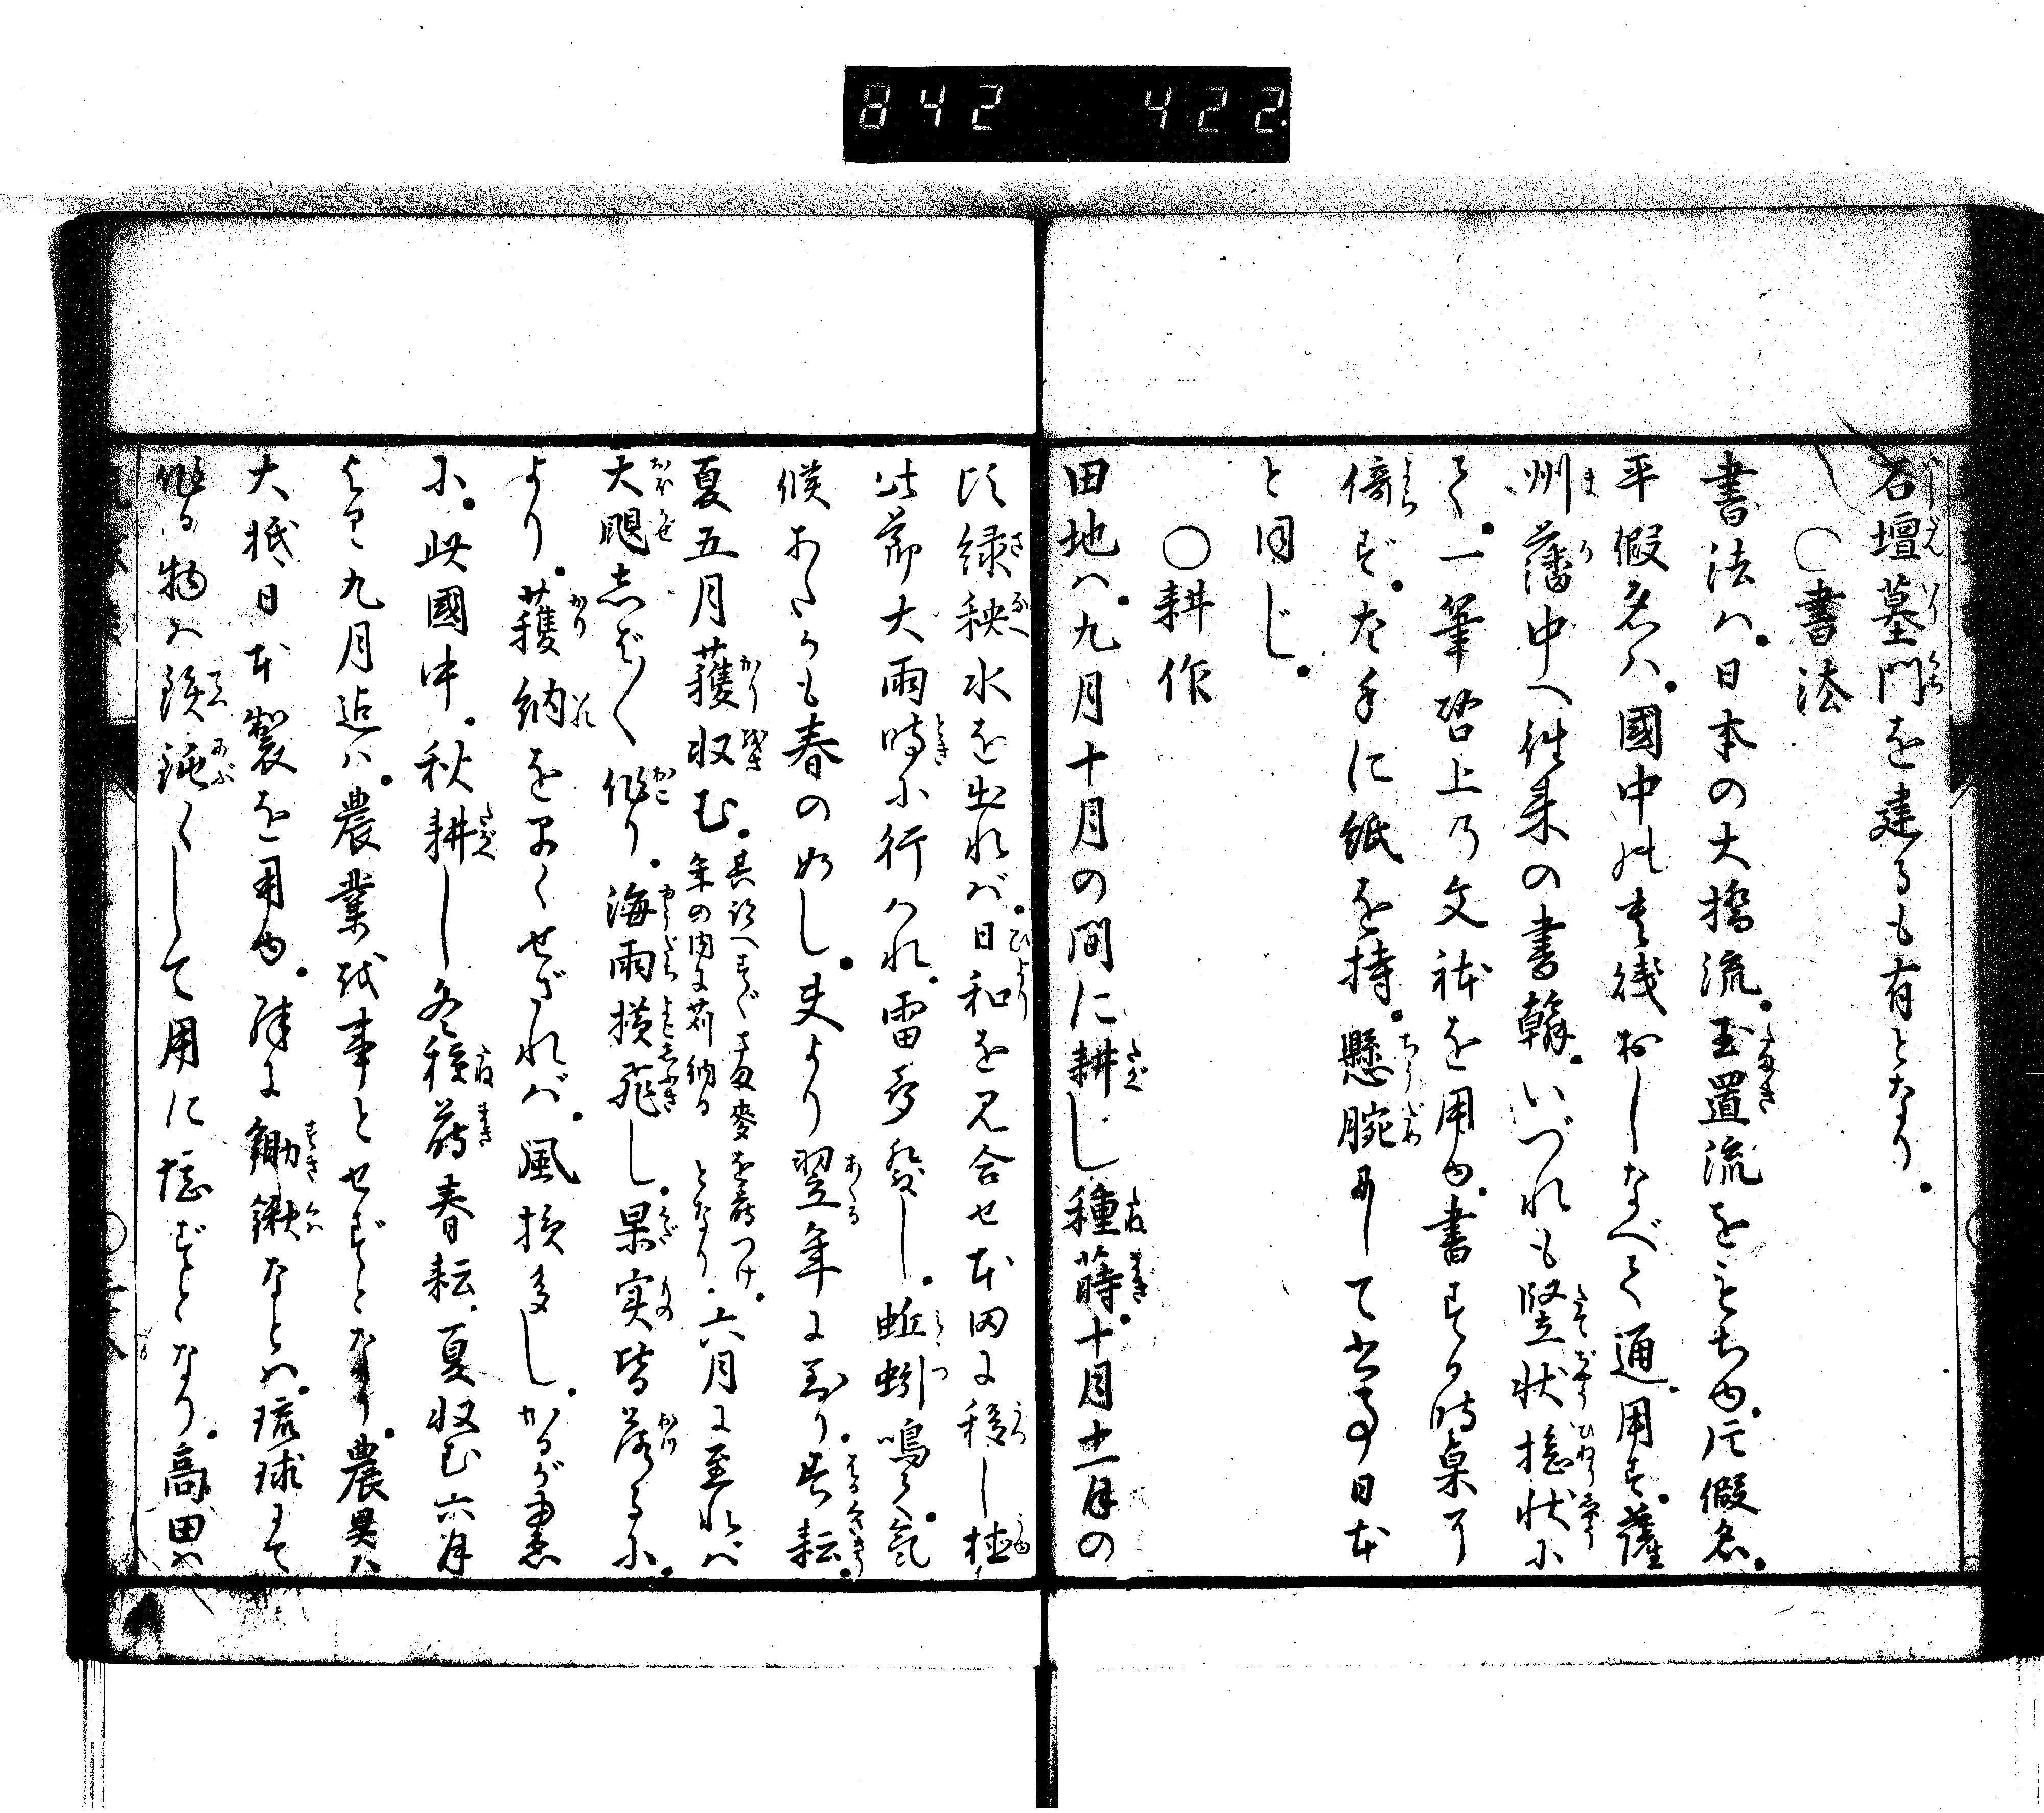 842 422
石壇墓門を建るも有となり。
〇書法
書法ハ。日本の大橋流。玉置流をもちゆ。片假名。
平假名ハ。國中貴賤おしなべて通用す。薩
州藩中へ往来の書翰。いづれも竪状捻状に
て。一筆啓上の文体を用ゆ。書する時桌に
倚ず。左手に紙を持。懸腕にして書事日本
と同じ。
〇耕作
田地ハ。九月十月の間に耕し種蒔。十月十一月の
比緑秧水を出れバ。日和を見合せ本田に移し植
此節大雨時に行ハれ。雷多發し。蚯蚓鳴て。氣
候あたかも春の如し。夫より翌年に至り。春耘。
夏五月獲収む。其跡へすぐさま麥を蒔つけ。年の内に苅納るとなり。六月に至れバ
大颶しば〱作り。海雨横飛し。果実皆落るに。
より。獲納を早くせざれバ。風損多し。かるが故
に。此國中。秋耕し冬種蒔春耘。夏収む六月
より九月迄ハ。農業を事とせずとなり。農具ハ
大抵日本製を用ゆ。稀に鋤鍬なとハ。琉球にて
作る物ハ鋭鈍くして用に堪ずとなり。高田ハ